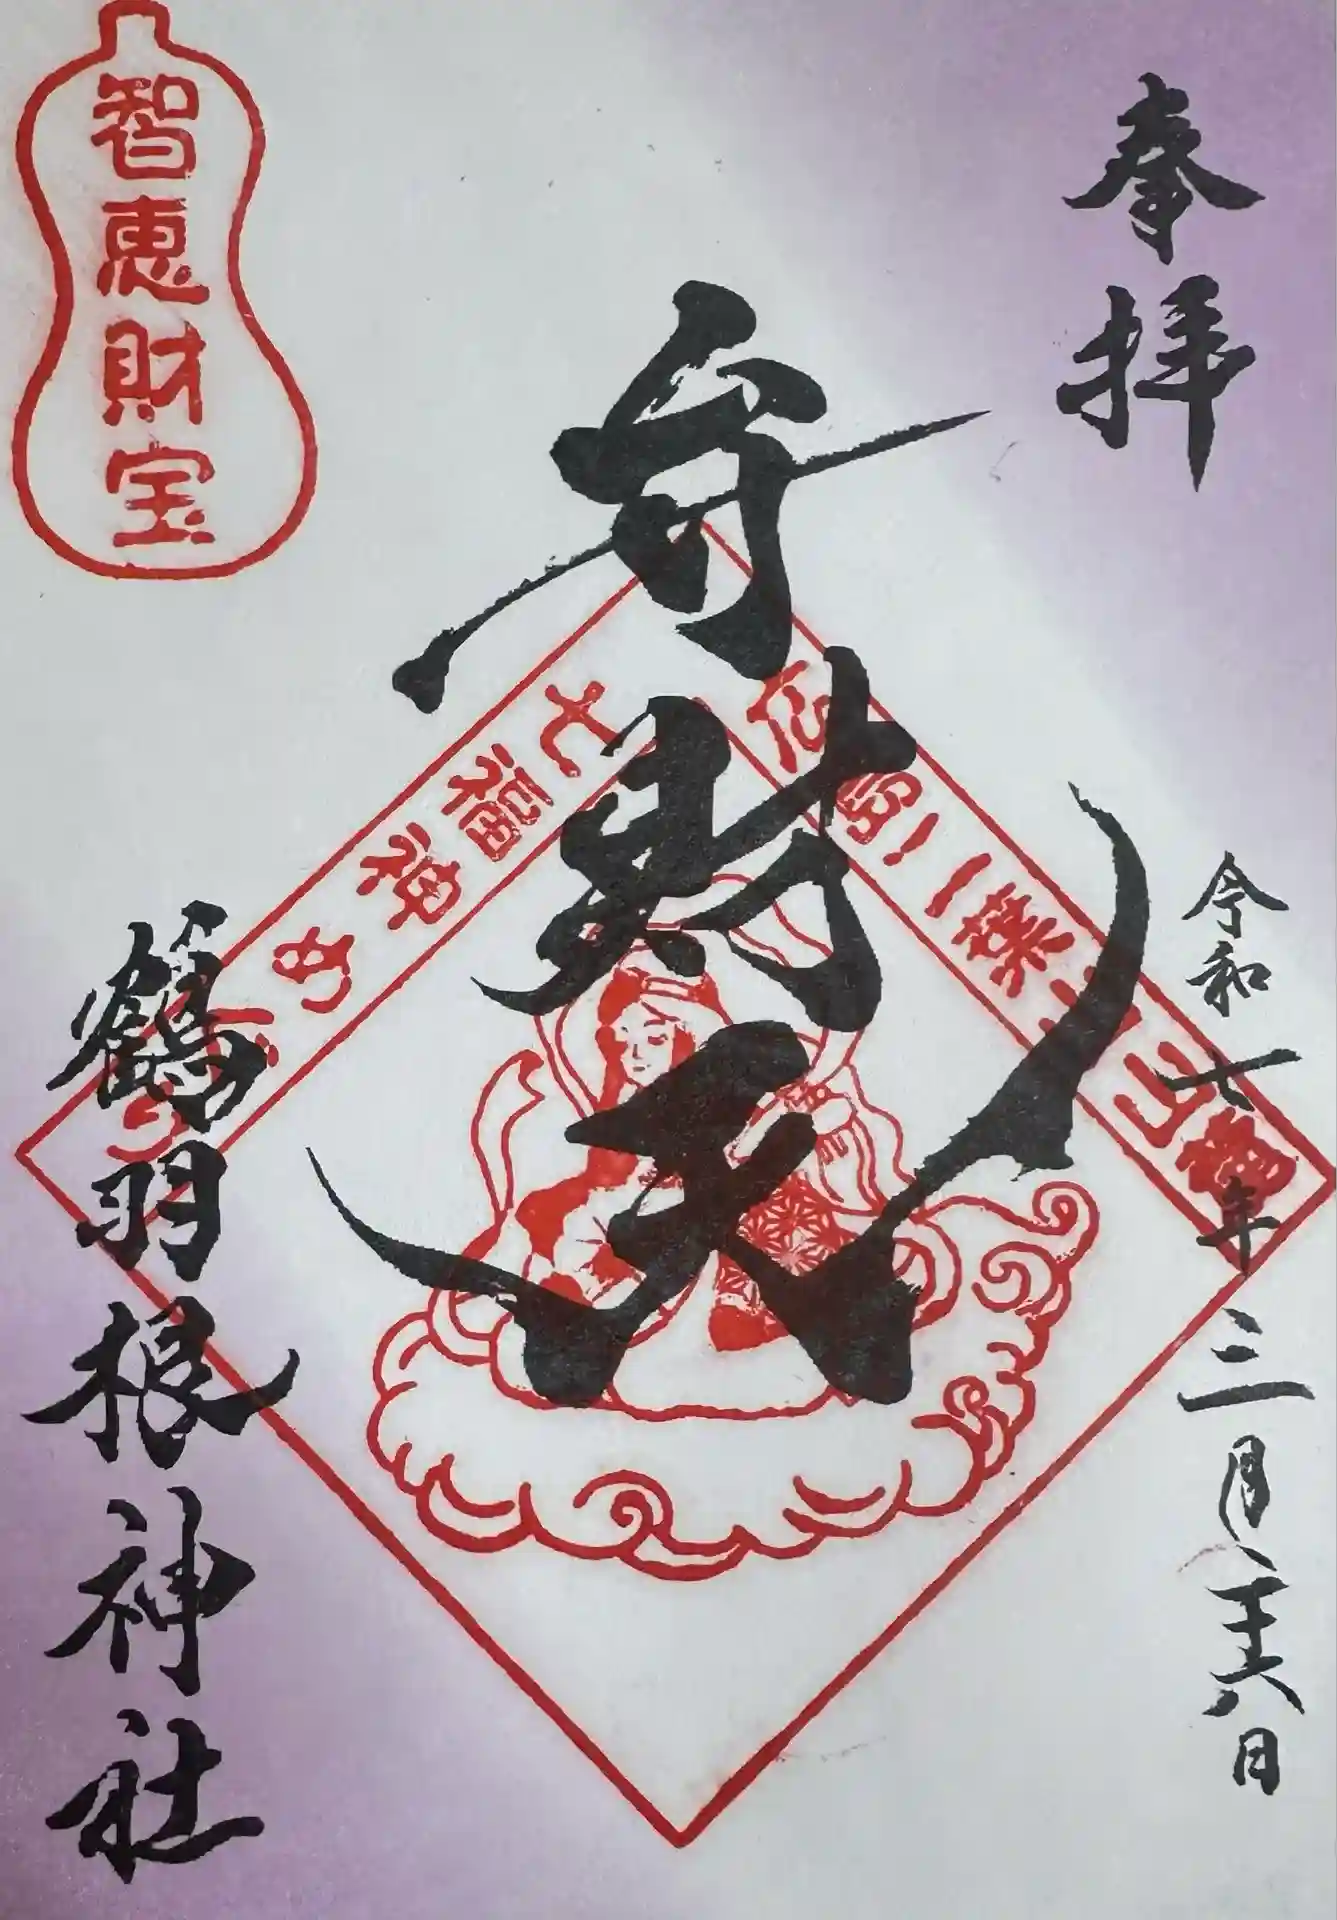 奉拝
令和七年三月二十六日
弁財天
広島・二葉山山麓
七福神めぐり
智恵財宝
鶴羽根神社